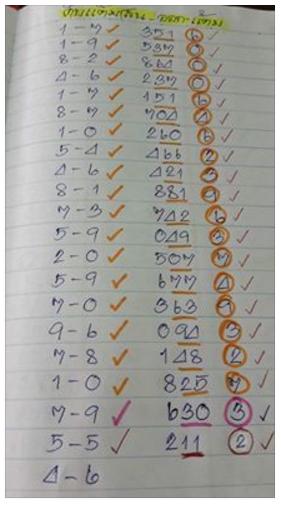 1-7 ✓ 351 6 ✓
1-9 ✓ 537 0 ✓
8-2 ✓ 864 0 ✓
4-6 ✓ 237 0 ✓
1-7 ✓ 151 6 ✓
8-7 ✓ 704 4 ✓
1-0 ✓ 260 6 ✓
5-4 ✓ 466 2 ✓
4-6 ✓ 421 3 ✓
8-1 ✓ 881 9 ✓
7-3 ✓ 742 6 ✓
5-9 ✓ 049 3 ✓
2-0 ✓ 507 7 ✓
5-9 ✓ 677 4 ✓
7-0 ✓ 363 9 ✓
9-6 ✓ 094 3 ✓
7-8 ✓ 148 2 ✓
1-0 ✓ 825 7 ✓
7-9 ✓ 630 3 ✓
5-5 ✓ 211 2 ✓
4-6